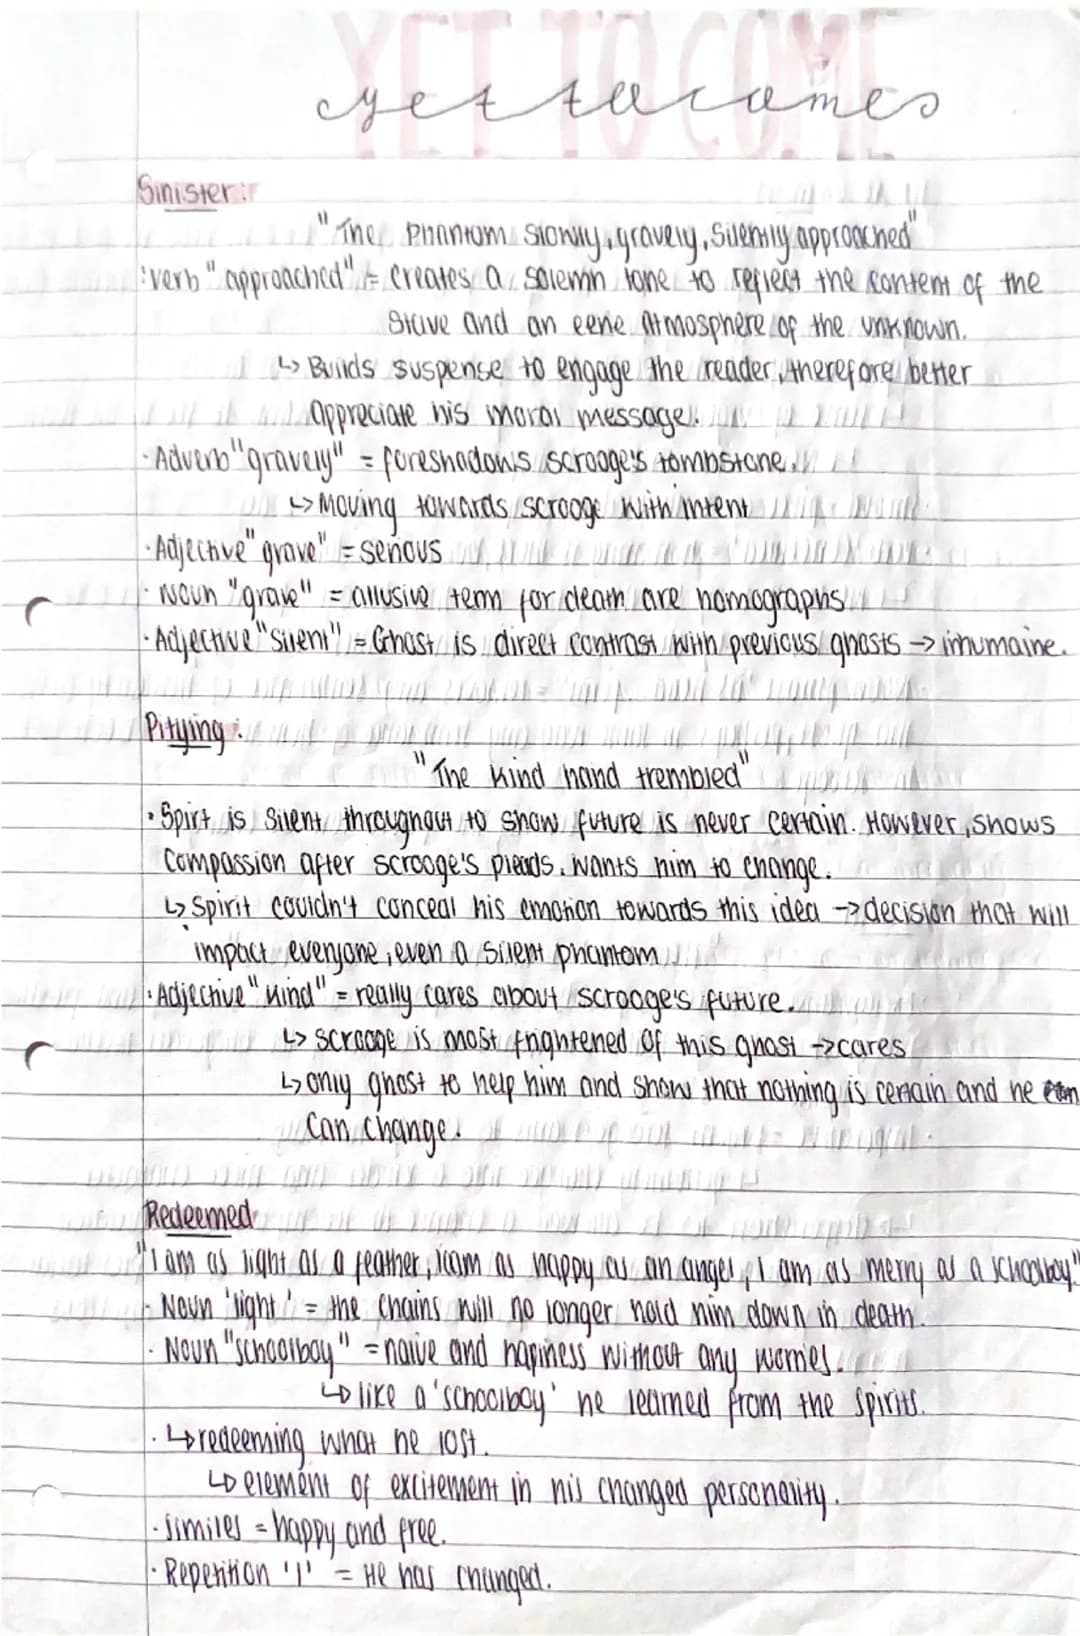 YET TO COME
yet to comes
Sinister:
"The Phantom slowly, gravely, silently approached"
·verb "approached" = creates a solemn tone to reflect the content of the
Stave and an eerie atmosphere of the unknown.
↳ Builds suspense to engage the reader, therefore better
appreciate his moral message.
·Adverb "gravely" = foreshadows scrooge's tombstone.
↳ Moving towards scrooge with intent
·Adjective "grave" = serious
·Noun "grave" = allusive term for death are homographs
·Adjective "silent" = Ghost is direct contrast with previous ghosts → inhumaine.
Pitying:
"The kind hand trembled"
·Spirt is silent throughout to show future is never certain. However, shows
compassion after scrooge's pleads. Wants him to change.
↳ Spirit couldn't conceal his emotion towards this idea → decision that will
impact everyone, even a silent phantom
·Adjective "kind" = really cares about scrooge's future.
↳ scrooge is most frightened of this ghost → cares
↳ only ghost to help him and show that nothing is certain and he
can change.
Redeemed
"I am as light as a feather, I am as happy as an angel, I am as merry as a schoolboy."
· Noun 'light' = the chains will no longer hold him down in death.
· Noun "schoolboy" = naive and hapiness without any worries.
↳ like a 'schoolboy' he learned from the spirits.
· ↳ redeeming what he lost.
↳ element of excitement in his changed personality.
·similes = happy and free.
·Repetition 'I' = He has changed.